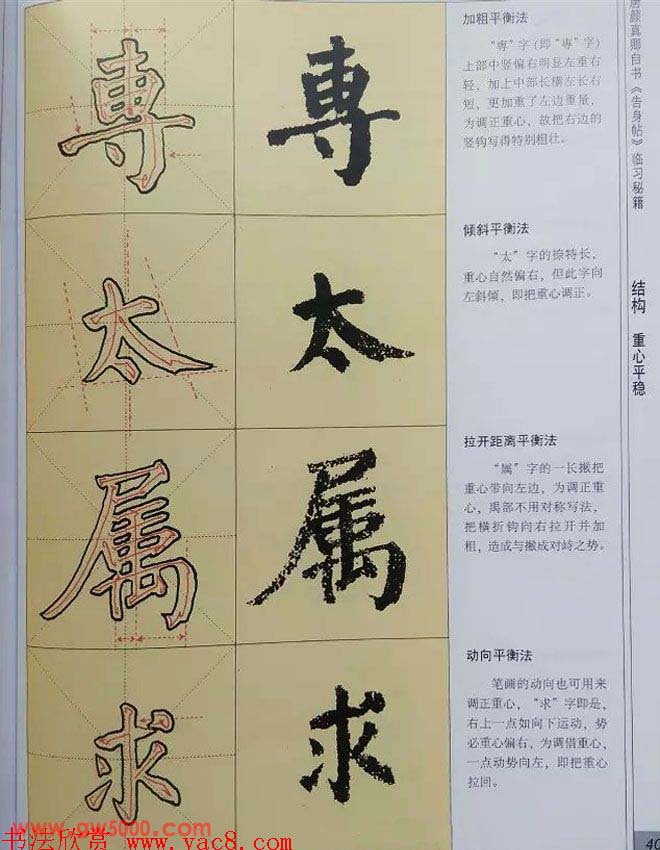 加粗平衡法
“専”字（即“專”字）
上部中竖偏右明显左重右
轻，加上中部长横左长右
短，更加重了左边重量，
为调正重心，故把右边的
竖钩写得特别粗壮。
専
専
倾斜平衡法
“太”字的捺特长，
重心自然偏右，但此字向
左斜倾，即把重心调正。
太
太
拉开距离平衡法
“属”字的一长撇把
重心带向左边，为调正重
心，禹部不用对称写法，
把横折钩向右拉开并加
粗，造成与撇成对峙之势。
属
属
动向平衡法
笔画的动向也可用来
调正重心，“求”字即是，
右上一点如向下运动，势
必重心偏右，为调借重心，
一点动势向左，即把重心
拉回。
求
求
唐颜真卿自书《告身帖》临习秘籍
结构 重心平稳
40
www.gw5000.com
书法欣赏 www.yac8.com